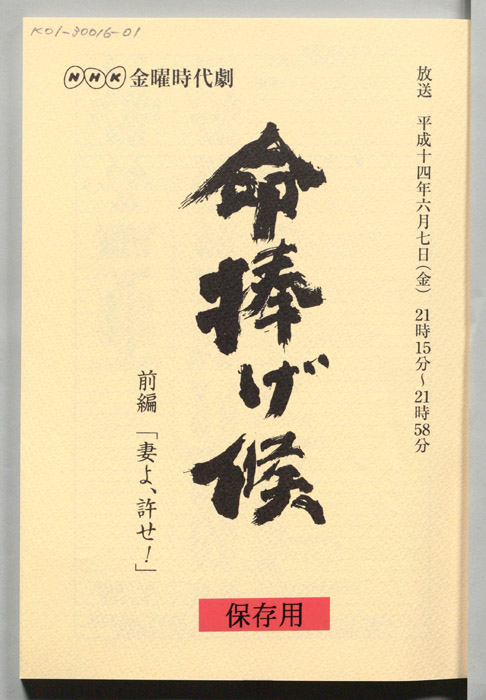 K01-30016-01
NHK 金曜時代劇
放送 平成十四年六月七日(金) 21時15分～21時58分
命捧げ候
前編「妻よ、許せ！」
保存用